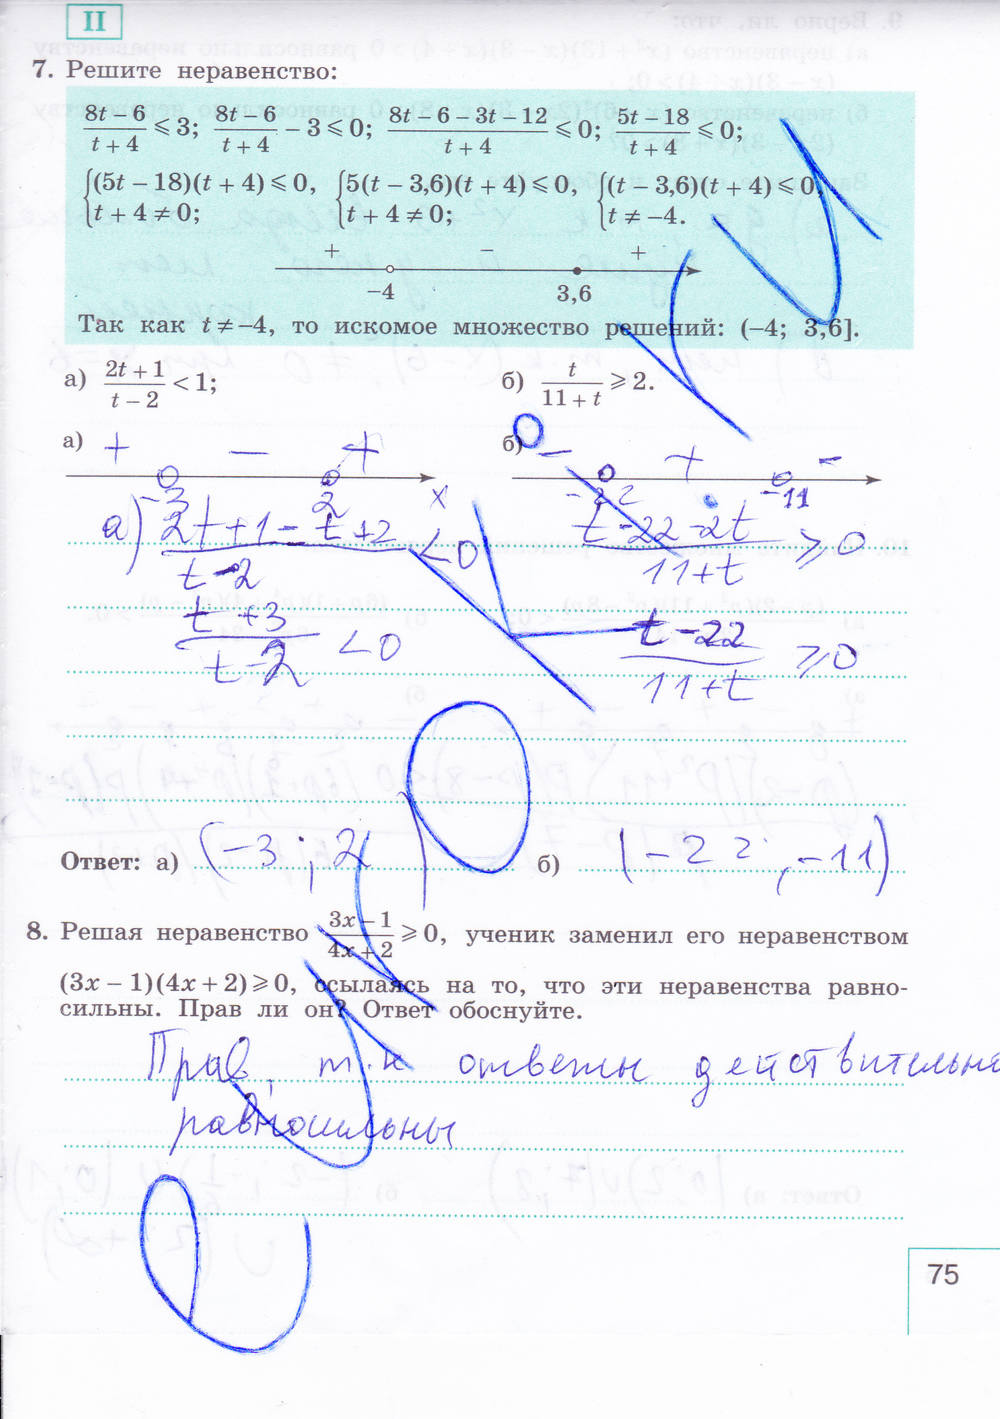 II
7. Решите неравенство:
(8t − 6)/(t + 4) ⩽ 3; (8t − 6)/(t + 4) − 3 ⩽ 0; (8t − 6 − 3t − 12)/(t + 4) ⩽ 0; (5t − 18)/(t + 4) ⩽ 0;
{(5t − 18)(t + 4) ⩽ 0, {5(t − 3,6)(t + 4) ⩽ 0, {(t − 3,6)(t + 4) ⩽ 0,
t + 4 ≠ 0; t + 4 ≠ 0; t ≠ −4.
+ − +
−4 3,6
Так как t ≠ −4, то искомое множество решений: (−4; 3,6].
а) (2t + 1)/(t − 2) < 1; б) t/(11 + t) ⩾ 2.
а) + − + б) − + −
−3 2 x −22 −11
а) (2t + 1 − t + 2)/(t − 2) < 0 (t − 22 − 2t)/(11 + t) ⩾ 0
(t + 3)/(t − 2) < 0 (t − 22)/(11 + t) ⩾ 0
Ответ: а) (−3; 2) б) (−22; −11)
8. Решая неравенство (3x − 1)/(4x + 2) ⩾ 0, ученик заменил его неравенством
(3x − 1)(4x + 2) ⩾ 0, ссылаясь на то, что эти неравенства равно-
сильны. Прав ли он? Ответ обоснуйте.
Прав, т. к ответы действительно
равносильны
75